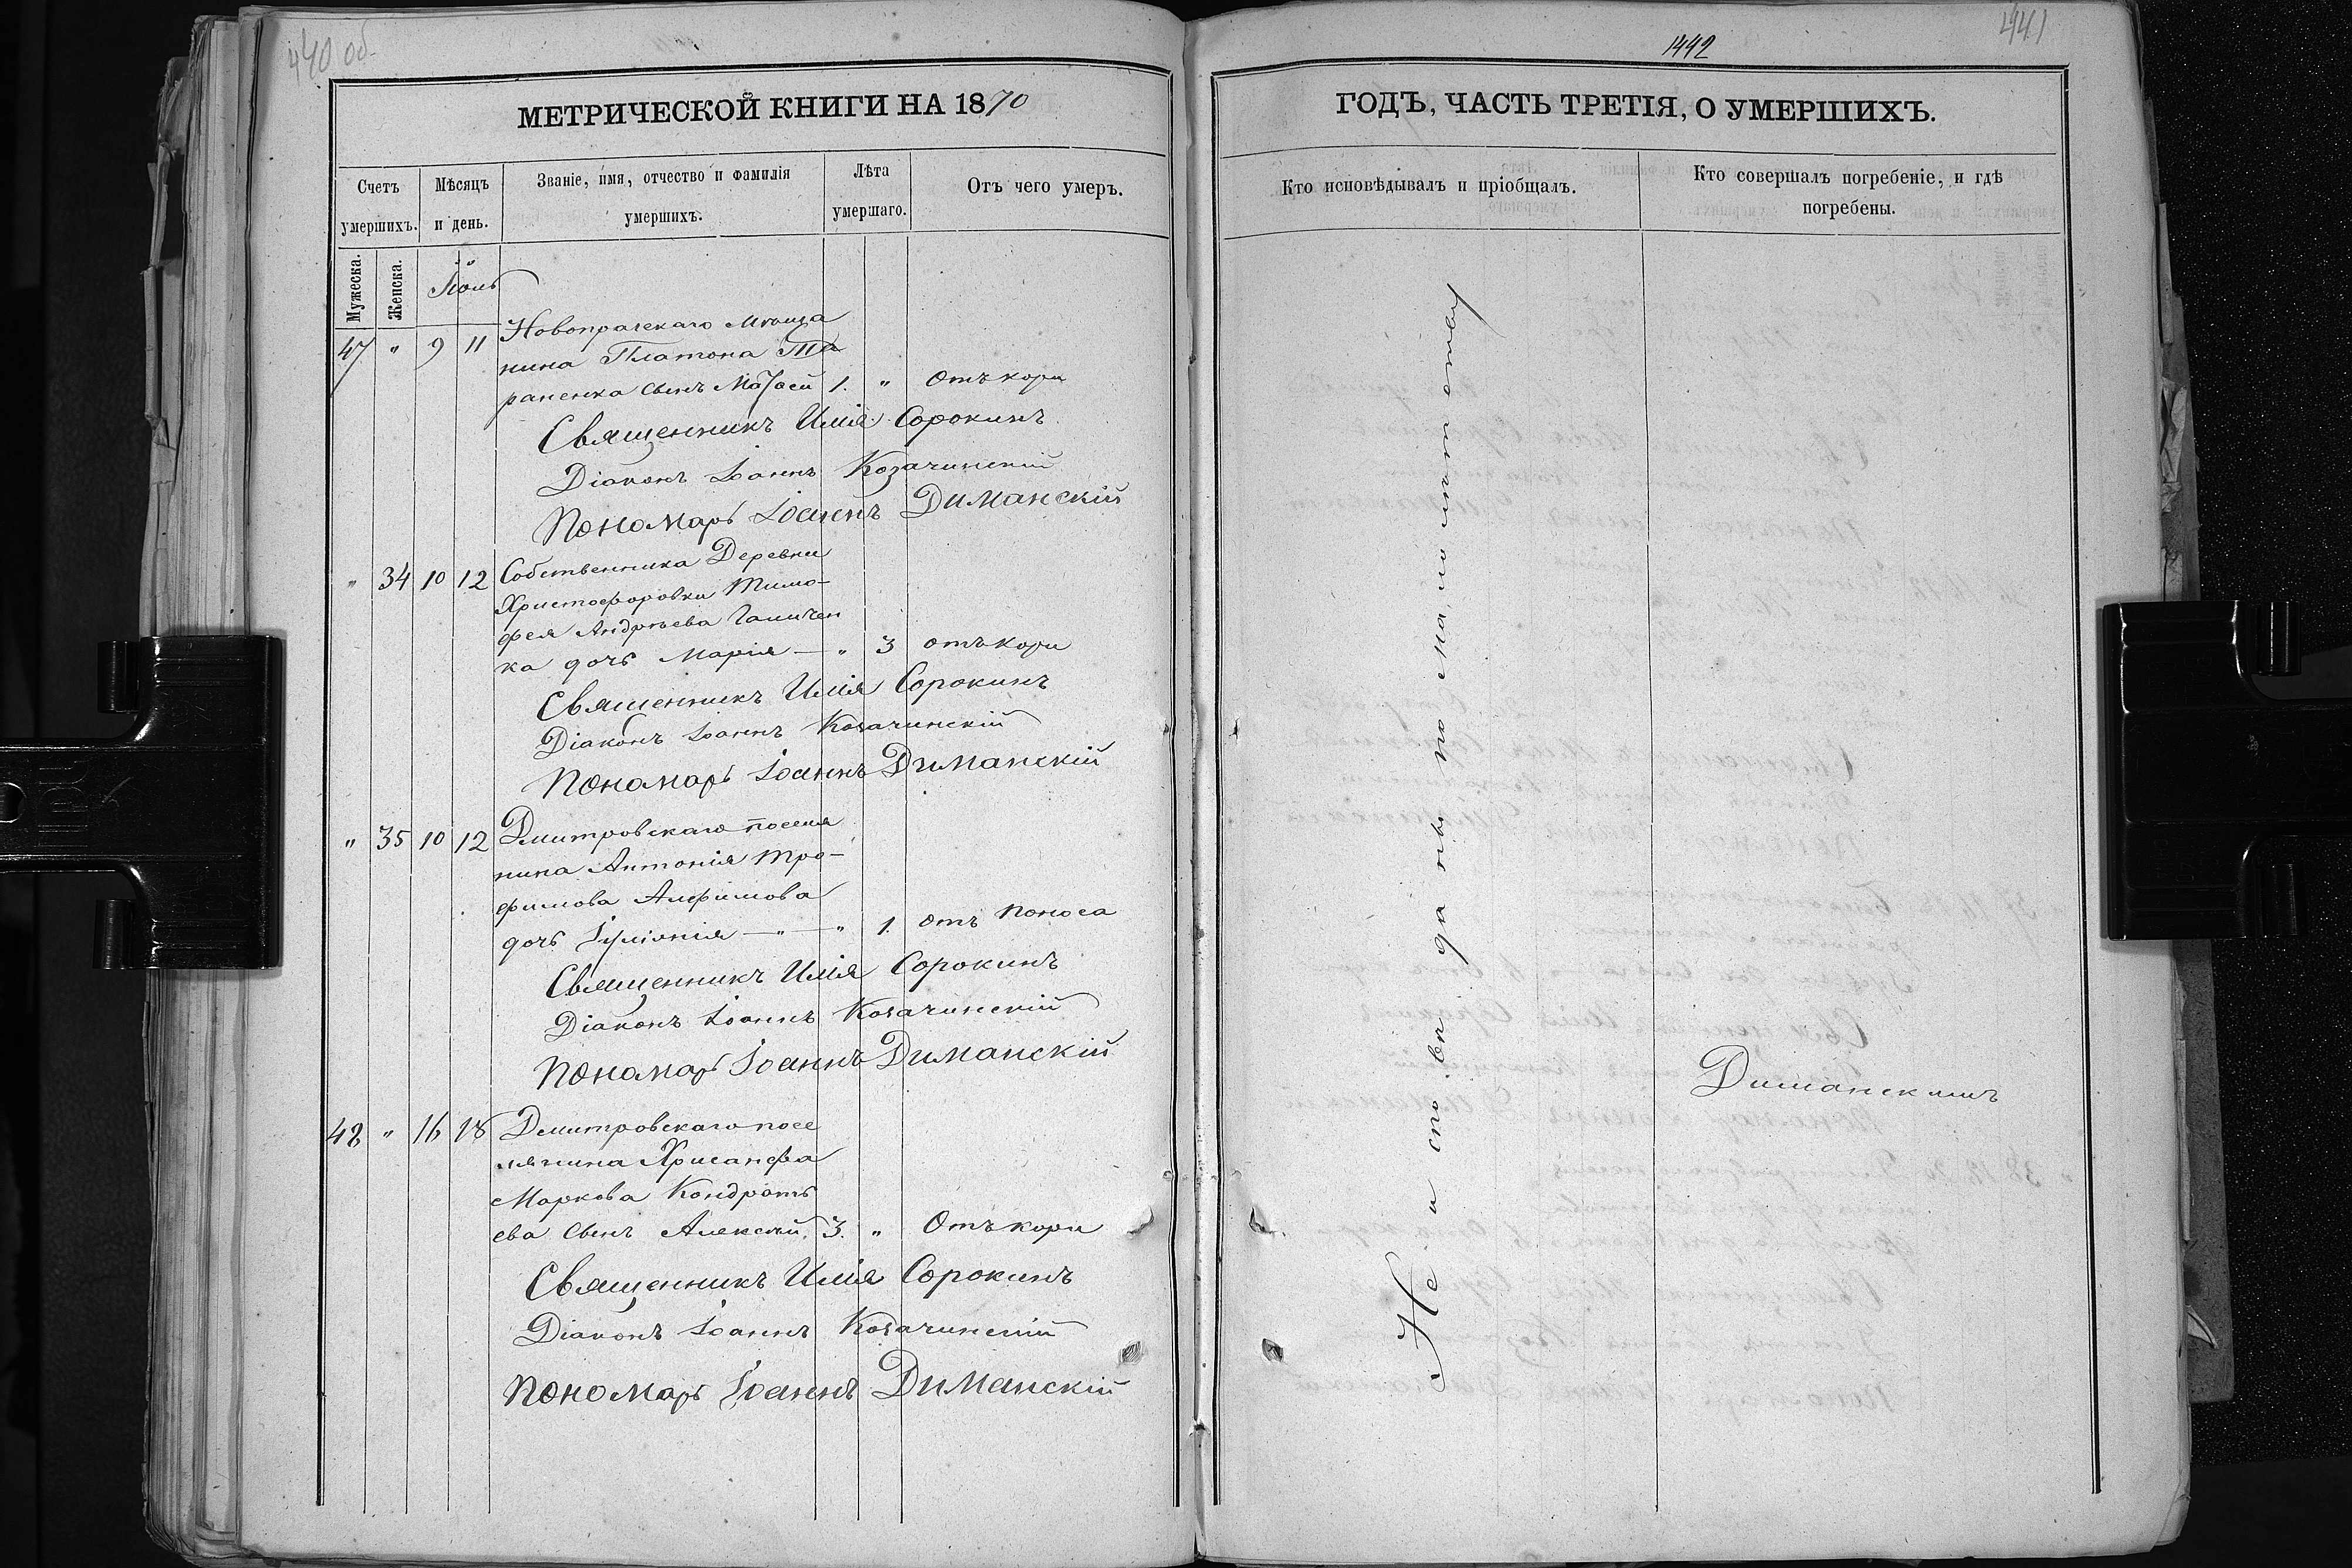 440 об
МЕТРИЧЕСКОЙ КНИГИ НА 1870
Счетъ умершихъ.
Мѣсяцъ и день.
Званіе, имя, отчество и фамилія умершихъ.
Лѣта умершаго.
Отъ чего умеръ.
Мужеска.
Женска.
Новопрагскаго мѣща
47 " 9 11 нина Платона Та
раненка сынъ Матѳей 1. " Отъ кори
Священникъ Илія Сорокинъ
Діаконъ Іоаннъ Козачинскій
Пономарь Іоаннъ Диманскій
" 34 10 12 Собственника Деревни
Христофоровки Тимо-
фея Андрѣева
ка дочь Марія — " 3 отъ кори
Священникъ Илія Сорокинъ
Діаконъ Іоаннъ Козачинскій
Пономарь Іоаннъ Диманскій
" 35 10 12 Дмитровскаго поселя
нина Антонія Тро-
фимова
дочь Іуліанія — " — " 1. отъ поноса
Священникъ Илія Сорокинъ
Діаконъ Іоаннъ Козачинскій
Пономарь Іоаннъ Диманскій
48 " 16 18 Дмитровскаго посе
лянина Хрисанфа
Маркова Кондрать
ева сынъ Алексѣй. 3. " Отъ кори
Священникъ Илія Сорокинъ
Діаконъ Іоаннъ Козачинскій
Пономарь Іоаннъ Диманскій
1442
441
ГОДЪ, ЧАСТЬ ТРЕТІЯ, О УМЕРШИХЪ.
Кто исповѣдывалъ и пріобщалъ.
Кто совершалъ погребеніе, и гдѣ погребены.
Не исповѣданы по малолѣтству
Диманскимъ